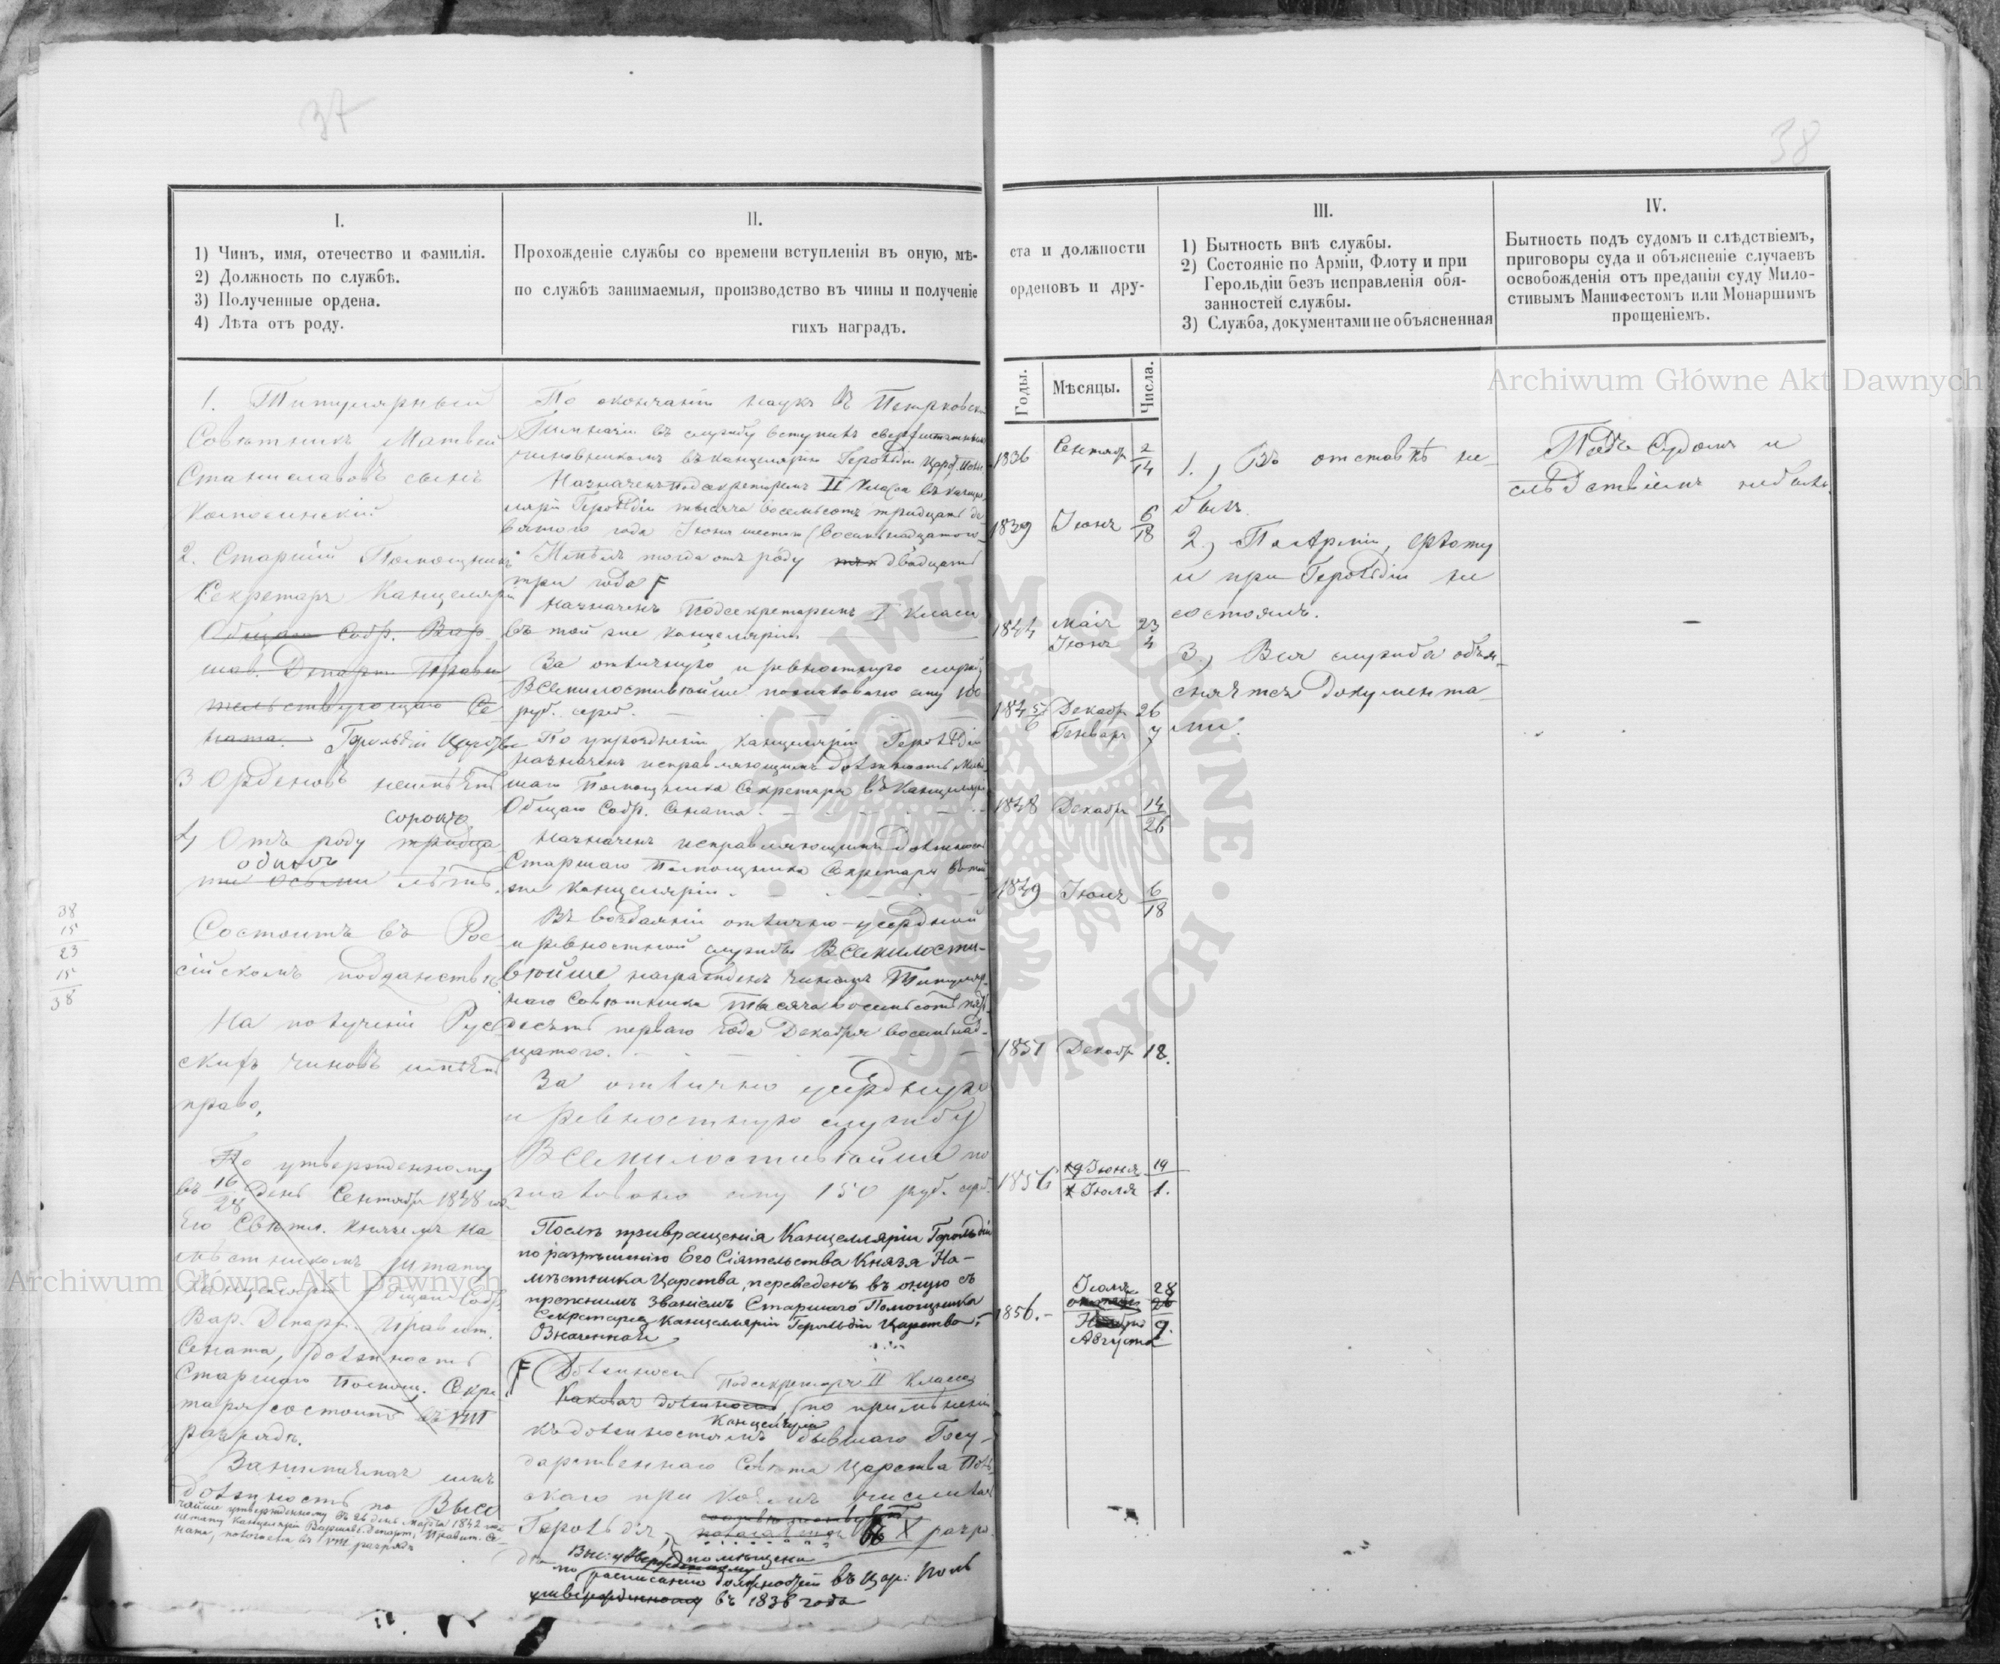 37
38
I.
1) Чинъ, имя, отечество и фамилія.
2) Должность по службѣ.
3) Полученные ордена.
4) Лѣта отъ роду.
II.
Прохожденіе службы со времени вступленія въ оную, мѣ-
по службѣ занимаемыя, производство въ чины и полученіе
гихъ наградъ.
ста и должности
орденовъ и дру-
Годы.
Мѣсяцы.
Числа.
III.
1) Бытность внѣ службы.
2) Состояніе по Арміи, Флоту и при
Герольдіи безъ исправленія обя-
занностей службы.
3) Служба, документами не объясненная
IV.
Бытность подъ судомъ и слѣдствіемъ,
приговоры суда и объясненіе случаевъ
освобожденія отъ преданія суду Мило-
стивымъ Манифестомъ или Монаршимъ
прощеніемъ.
1. Титулярный
Совѣтникъ Матвей
Станиславовъ сынъ
2. Старшій Помощникъ
Секретаря Канцеляріи
Общаго Собр. Вар
шав. Департ. Прави
тельствующаго Се
ната. Герольдіи Царства
3 Орденовъ неимѣетъ
сорокъ
4 Отъ роду тридца
одинъ
ти осьми лѣтъ.
38
15
23
15
38
Состоитъ въ Рос
сійскомъ подданствѣ.
На полученіе Рус
скихъ чиновъ имѣетъ
право.
По утвержденному
въ 16/28 день Сентября 1848 года
Его Свѣтл. Княземъ На
мѣстникомъ штату
Канцеляріи Общаго Собр.
Вар. Департ. Правит.
Сената, должность
Старшаго Помощ. Секре
таря состоитъ въ VIII
разрядѣ.
Занимаемая имъ
должность по Высо
чайше утвержденному въ 26 день Марта 1842 года
штату Канцеляріи Варшав. Департ. Правит. Се-
ната, положена въ VIII разрядѣ
По окончаніи наукъ въ Петрковской
Гимназіи въ службу вступилъ сверхштатнымъ
чиновникомъ въ Канцелярію Герольдіи Царс. Поль
Назначенъ Подсекретаремъ II класса въ канце
ляріи Герольдіи тысяча восемьсотъ тридцать де
вятаго года Іюня шестаго (восемнадцатаго
Имѣлъ тогда отъ роду двадцать
три года F
Назначенъ Подсекретаремъ I класса
въ той же канцеляріи
За отличную и ревностную служ.
Всемилостивѣйше пожаловано ему 100
руб. сереб.
По упраздненіи Канцеляріи Герольдіи
назначенъ исправляющимъ должность Млад
шаго Помощника Секретаря въ Канцеляріи
Общаго Собр. Сената.
Назначенъ исправляющимъ должность
Старшаго Помощника Секретаря въ той
же Канцеляріи.
Въ воздаяніи отлично-усердной
и ревностной службы Всемилости-
вѣйше награжденъ чиномъ Титуляр
наго Совѣтника тысяча восемьсотъ пять
десятъ перваго года Декабря восемнад-
цатого.
За отлично усердную
и ревностную службу
Всемилостивѣйше по
жаловано ему 150 руб. сер.
Послѣ превращенія Канцелляріи Герольдіи
по разрѣшенію Его Сіятельства Князя На-
мѣстника Царства, переведенъ въ оную съ
прежнимъ званіемъ Старшаго Помощника
Секретаря Канцелляріи Герольдіи Царства.
Означенная
F Должность Подсекретаря II Класса
Каковая должность по примѣненію
Канцеляріи
къ должностямъ бывшаго Госу-
дарственнаго Совѣта Царства Поль
скаго при коемъ числилась
Герольдія, въ X разря
дѣ помѣщена
по росписанію должностей въ Цар: Поль
утвержденному въ 1838 года
1836 Сентяб 2/14
1839 Іюнь 6/18
1844 Маія 23
Іюня 4
1845/6 Декабр 26
Генваря 7
1848 Декабр 14/26
1849 Іюня 6/18
1851 Декабр 18.
1856 Іюня 19
Іюля 1.
1856. Іюля 28
Августа 9.
1., Въ отставкѣ не
былъ.
2., По Арміи, Флоту
и при Герольдіи не
состоялъ.
3., Вся служба объя-
сняется документа-
ми.
Подъ Судомъ и
слѣдствіемъ не былъ.
Archiwum Główne Akt Dawnych
Archiwum Główne Akt Dawnych
ARCHIWUM GŁÓWNE AKT DAWNYCH